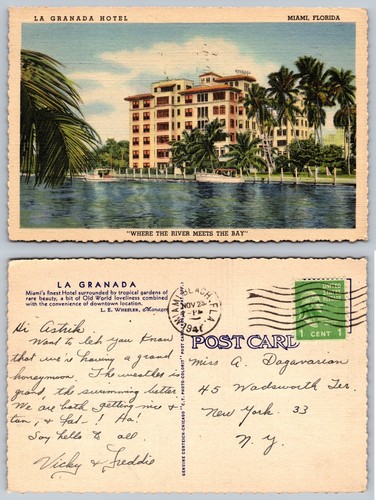 LA GRANADA HOTEL
MIAMI, FLORIDA
"WHERE THE RIVER MEETS THE BAY"
LA GRANADA
Miami's finest Hotel surrounded by tropical gardens of
rare beauty, a bit of Old World loveliness combined
with the convenience of downtown location.
L. E. WHEELER, Manager
MIAMI BEACH, FLA.
NOV 23
1941
UNITED STATES
1 CENT 1
POST CARD
Hi Astrik:
Want to let you know
that we're having a grand
honeymoon. The weather is
grand, the swimming better.
We are both getting nice &
tan, & fat-! Ha!
Say hello to all.
Vicky & Freddie
GENUINE CURTEICH-CHICAGO "C.T. PHOTO-COLORIT" POST CARD
Miss A. Dagavarian
45 Wadsworth Ter.
New York. 33
N. Y.